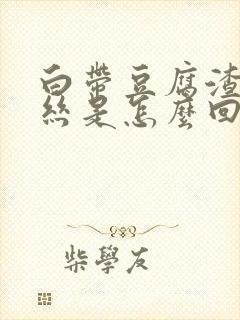 白带豆腐渣
丝是怎麼回
柴學友